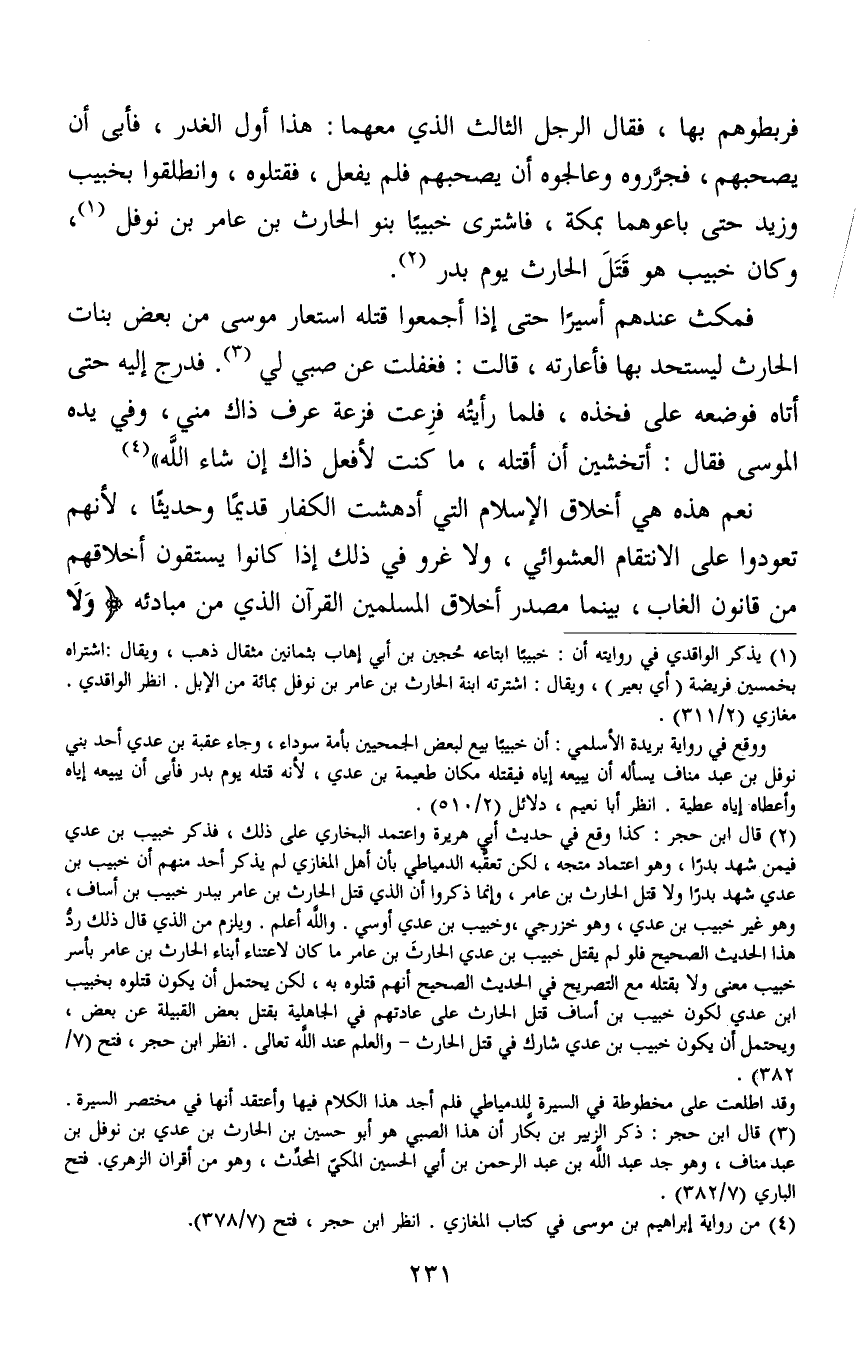 فربطوهم بها ، فقال الرجل الثالث الذي معهما : هذا أول الغدر ، فأبى أن
يصحبهم ، فجرَّروه وعالجوه أن يصحبهم فلم يفعل ، فقتلوه ، وانطلقوا بخبيب
وزيد حتى باعوهما بمكة ، فاشترى خبيبًا بنو الحارث بن عامر بن نوفل (١)،
وكان خبيب هو قَتَلَ الحارث يوم بدر (٢).
فمكث عندهم أسيرًا حتى إذا أجمعوا قتله استعار موسى من بعض بنات
الحارث ليستحد بها فأعارته ، قالت : فغفلت عن صبي لي (٣). فدرج إليه حتى
أتاه فوضعه على فخذه ، فلما رأيتُه فزِعت فزعة عرف ذاك مني ، وفي يده
الموسى فقال : أتخشين أن أقتله ، ما كنت لأفعل ذاك إن شاء اللَّه»(٤)
نعم هذه هي أخلاق الإسلام التي أدهشت الكفار قديمًا وحديثًا ، لأنهم
تعودوا على الانتقام العشوائي ، ولا غرو في ذلك إذا كانوا يستقون أخلاقهم
من قانون الغاب ، بينما مصدر أخلاق المسلمين القرآن الذي من مبادئه ﴿ وَلَا
(١) يذكر الواقدي في روايته أن : خبيبًا ابتاعه حُجين بن أبي إهاب بثمانين مثقال ذهب ، ويقال :اشتراه
بخمسين فريضة ( أي بعير ) ، ويقال : اشترته ابنة الحارث بن عامر بن نوفل بمائة من الإبل . انظر الواقدي .
مغازي (٣١١/٢) .
ووقع في رواية بريدة الأسلمي : أن خبيبًا بيع لبعض الجمحيين بأمة سوداء ، وجاء عقبة بن عدي أحد بني
نوفل بن عبد مناف يسأله أن يبيعه إياه فيقتله مكان طعيمة بن عدي ، لأنه قتله يوم بدر فأبى أن يبيعه إياه
وأعطاه إياه عطية . انظر أبا نعيم ، دلائل (٥١٠/٢) .
(٢) قال ابن حجر : كذا وقع في حديث أبي هريرة واعتمد البخاري على ذلك ، فذكر خبيب بن عدي
فيمن شهد بدرًا ، وهو اعتماد متجه ، لكن تعقَّبه الدمياطي بأن أهل المغازي لم يذكر أحد منهم أن خبيب بن
عدي شهد بدرًا ولا قتل الحارث بن عامر ، وإنما ذكروا أن الذي قتل الحارث بن عامر ببدر خبيب بن أساف ،
وهو غير خبيب بن عدي ، وهو خزرجي ،وخبيب بن عدي أوسي . واللَّه أعلم . ويلزم من الذي قال ذلك ردُّ
هذا الحديث الصحيح فلو لم يقتل خبيب بن عدي الحارثَ بن عامر ما كان لاعتناء أبناء الحارث بن عامر بأسر
خبيب معنى ولا بقتله مع التصريح في الحديث الصحيح أنهم قتلوه به ، لكن يحتمل أن يكون قتلوه بخبيب
ابن عدي لكون خبيب بن أساف قتل الحارث على عادتهم في الجاهلية بقتل بعض القبيلة عن بعض ،
ويحتمل أن يكون خبيب بن عدي شارك في قتل الحارث – والعلم عند اللَّه تعالى . انظر ابن حجر ، فتح (٧/
٣٨٢) .
وقد اطلعت على مخطوطة في السيرة للدمياطي فلم أجد هذا الكلام فيها وأعتقد أنها في مختصر السيرة .
(٣) قال ابن حجر : ذكر الزبير بن بكَّار أن هذا الصبي هو أبو حسين بن الحارث بن عدي بن نوفل بن
عبد مناف ، وهو جد عبد اللَّه بن عبد الرحمن بن أبي الحسين المكيّ المحدِّث ، وهو من أقران الزهري. فتح
الباري (٣٨٢/٧) .
(٤) من رواية إبراهيم بن موسى في كتاب المغازي . انظر ابن حجر ، فتح (٣٧٨/٧).
٢٣١